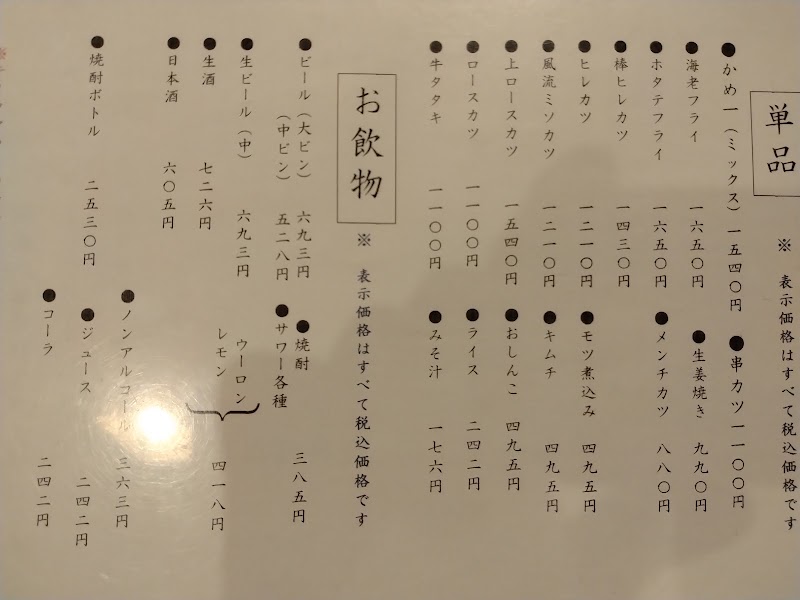 単品
※ 表示価格はすべて税込価格です
●かめ一(ミックス) 一五四〇円
●海老フライ 一六五〇円
●ホタテフライ 一六五〇円
●棒ヒレカツ 一四三〇円
●ヒレカツ 一二一〇円
●風流ミソカツ 一二一〇円
●上ロースカツ 一五四〇円
●ロースカツ 一一〇〇円
●牛タタキ 一一〇〇円
●串カツ 一一〇〇円
●生姜焼き 九九〇円
●メンチカツ 八八〇円
●モツ煮込み 四九五円
●キムチ 四九五円
●おしんこ 四九五円
●ライス 二四二円
●みそ汁 一七六円
お飲物
※ 表示価格はすべて税込価格です
●ビール(大ビン) 六九三円
(中ビン) 五二八円
●生ビール(中) 六九三円
●生酒 七二六円
●日本酒 六〇五円
●焼酎ボトル 二五三〇円
●焼酎 三八五円
●サワー各種
ウーロン
レモン
四一八円
●ノンアルコール 三六三円
●ジュース 二四二円
●コーラ 二四二円